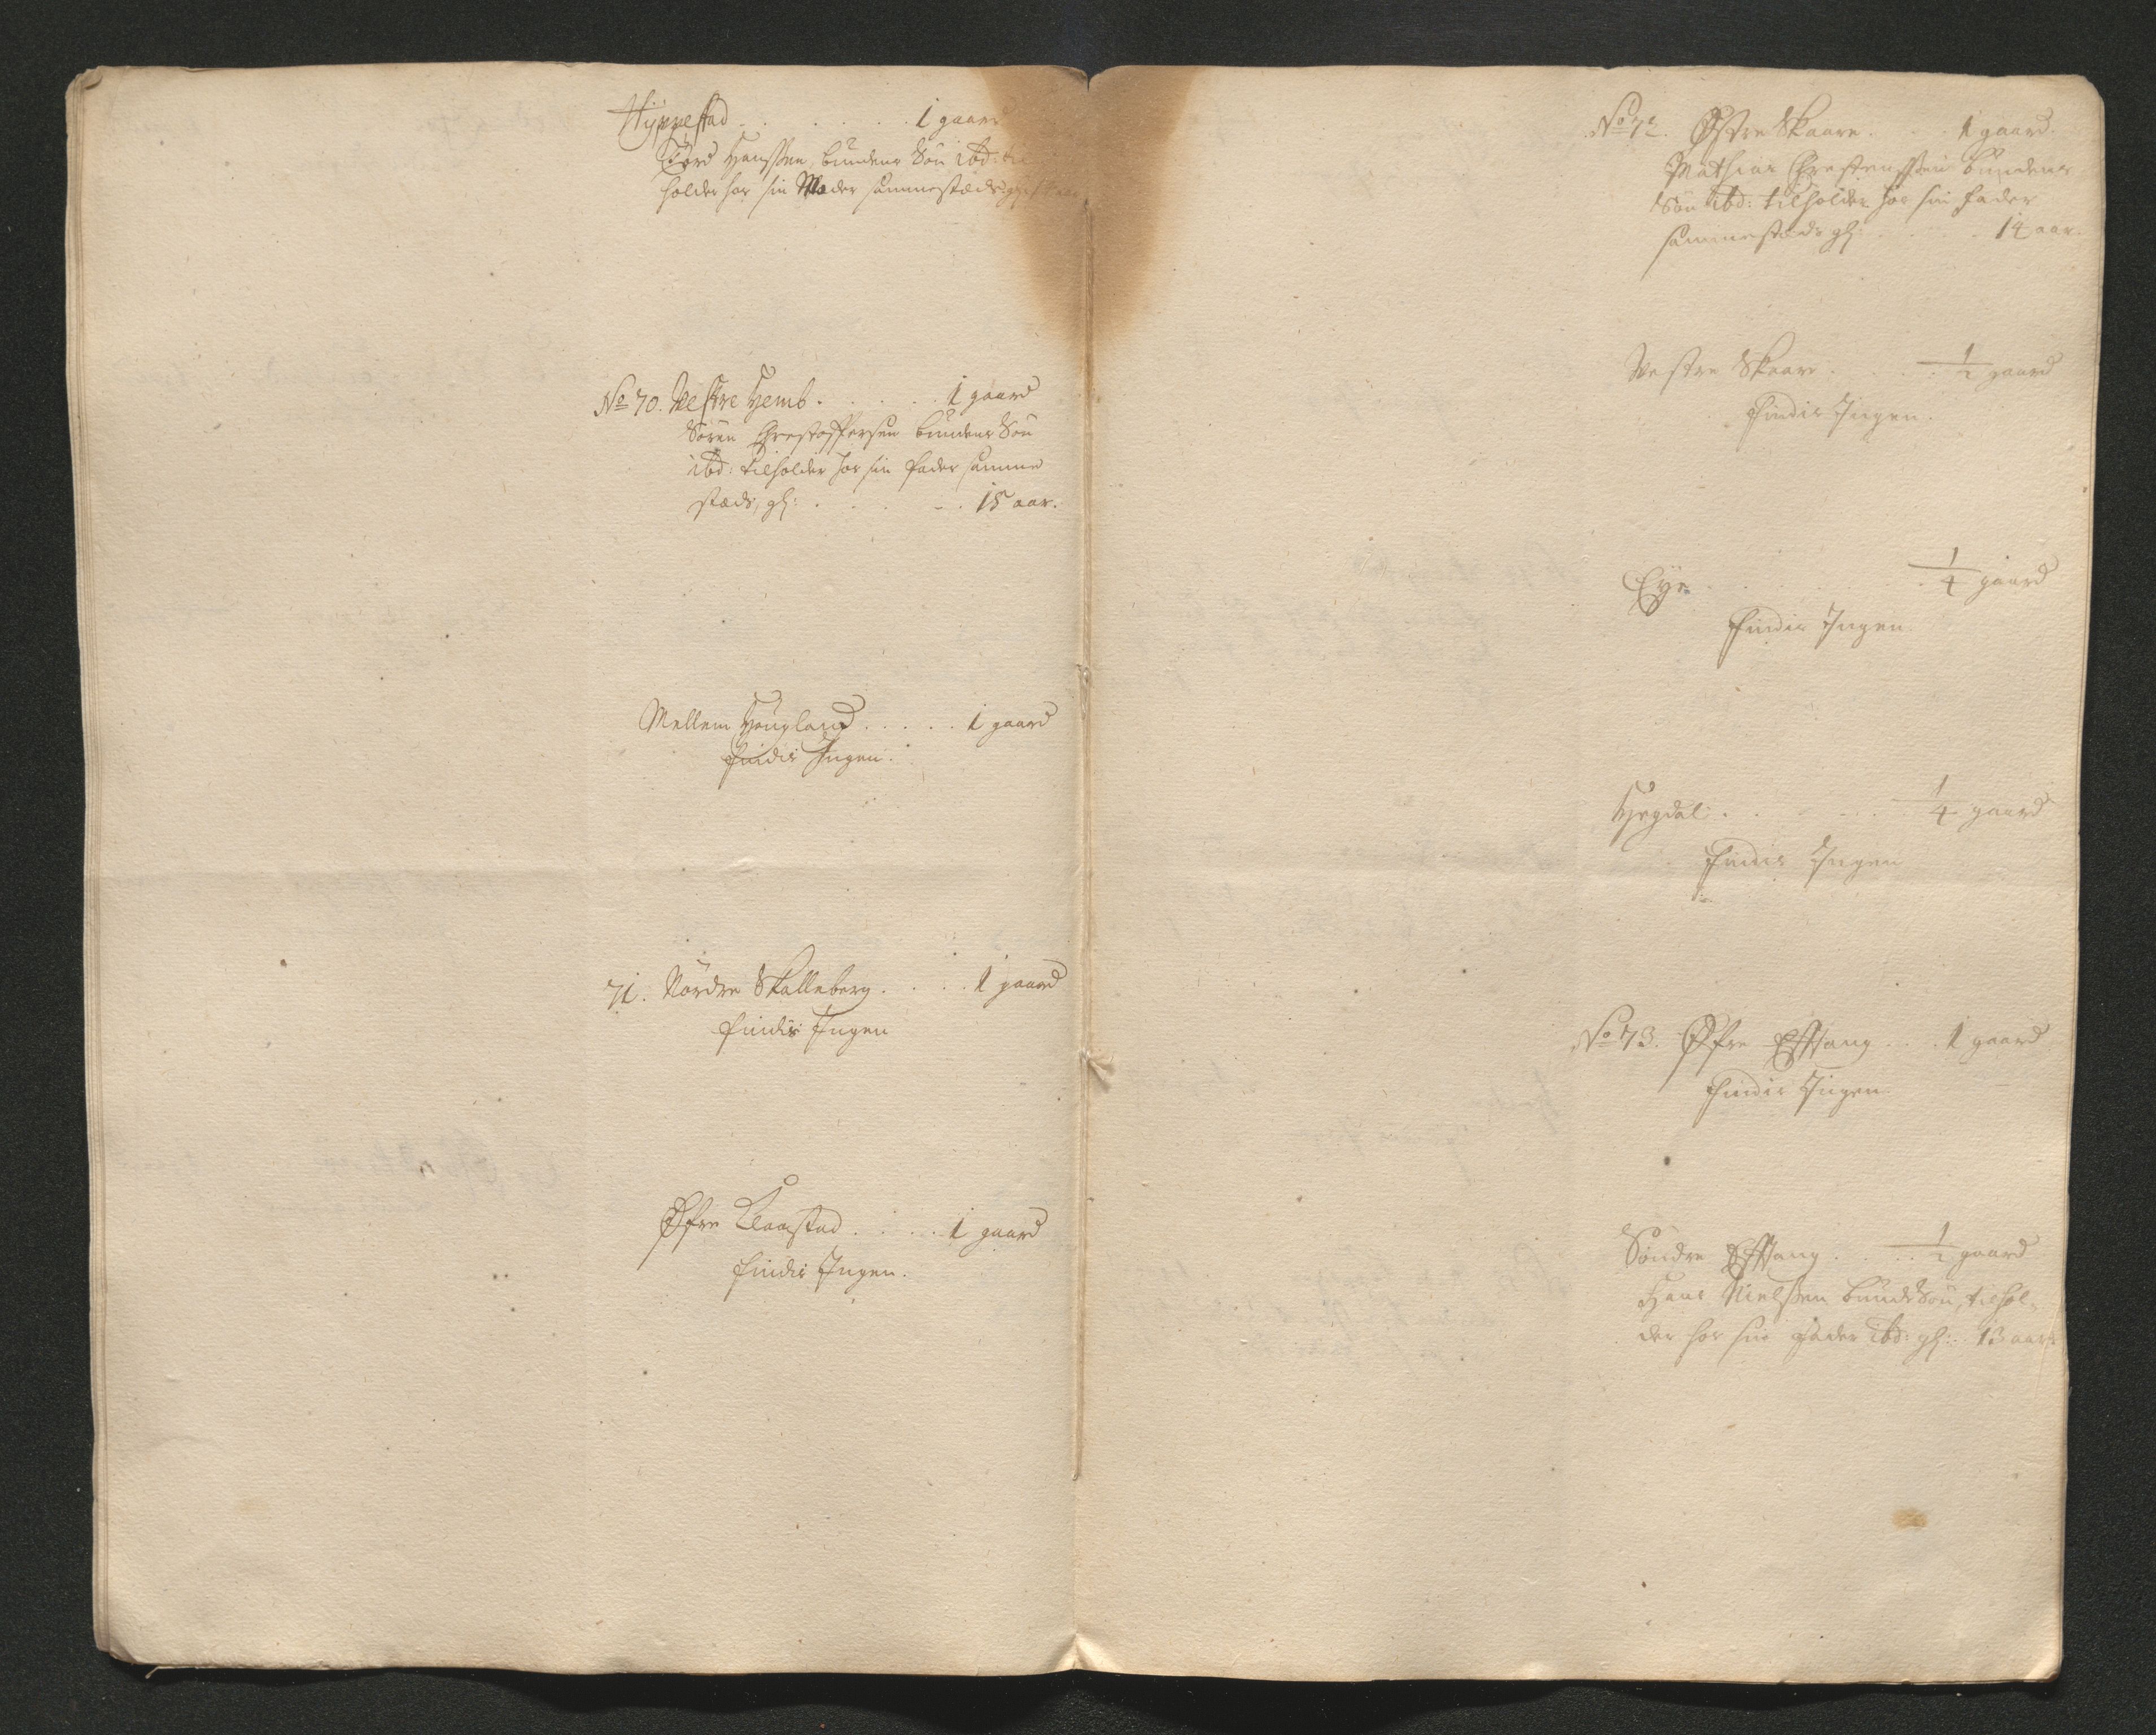 Hyppestad . . . . . . 1 gaard
Tord Hanssen, bundens Søn ibd: til
holder hos sin Moder sammestæds gl:
No 70. Vestre Hemb . . . . . 1 gaard
Sören Christoffersen bundens Søn
ibd: tilholder hos sin fader samme
stæds, gl: . . . . . 15 aar.
Mellem Hougland . . . . . 1 gaard
findis Ingen.
71. Nordre Skalleberg . . . . 1 gaard
findis Ingen
Øfre Klaastad . . . . 1 gaard
findis Ingen.
No 72. Østre Skaare . . . 1 gaard.
Mathias Christenssen bundens
Søn ibd: tilholder hos sin fader
sammestæds gl: . . . . . 14 aar.
Vestre Skaare . . . . 1/2 gaard
findis Ingen.
Eye . . . . . . 1/4 gaard
findis Ingen.
Hegdal . . . . . . 1/4 gaard
findis Ingen
No 73. Øfre Efftang . . . 1 gaard
findis Ingen
Söndre Efftang . . . . 1/2 gaard
Hans Nielssen bunds Søn, tilhol-
der hos sin fader ibd: gl: 13 aar